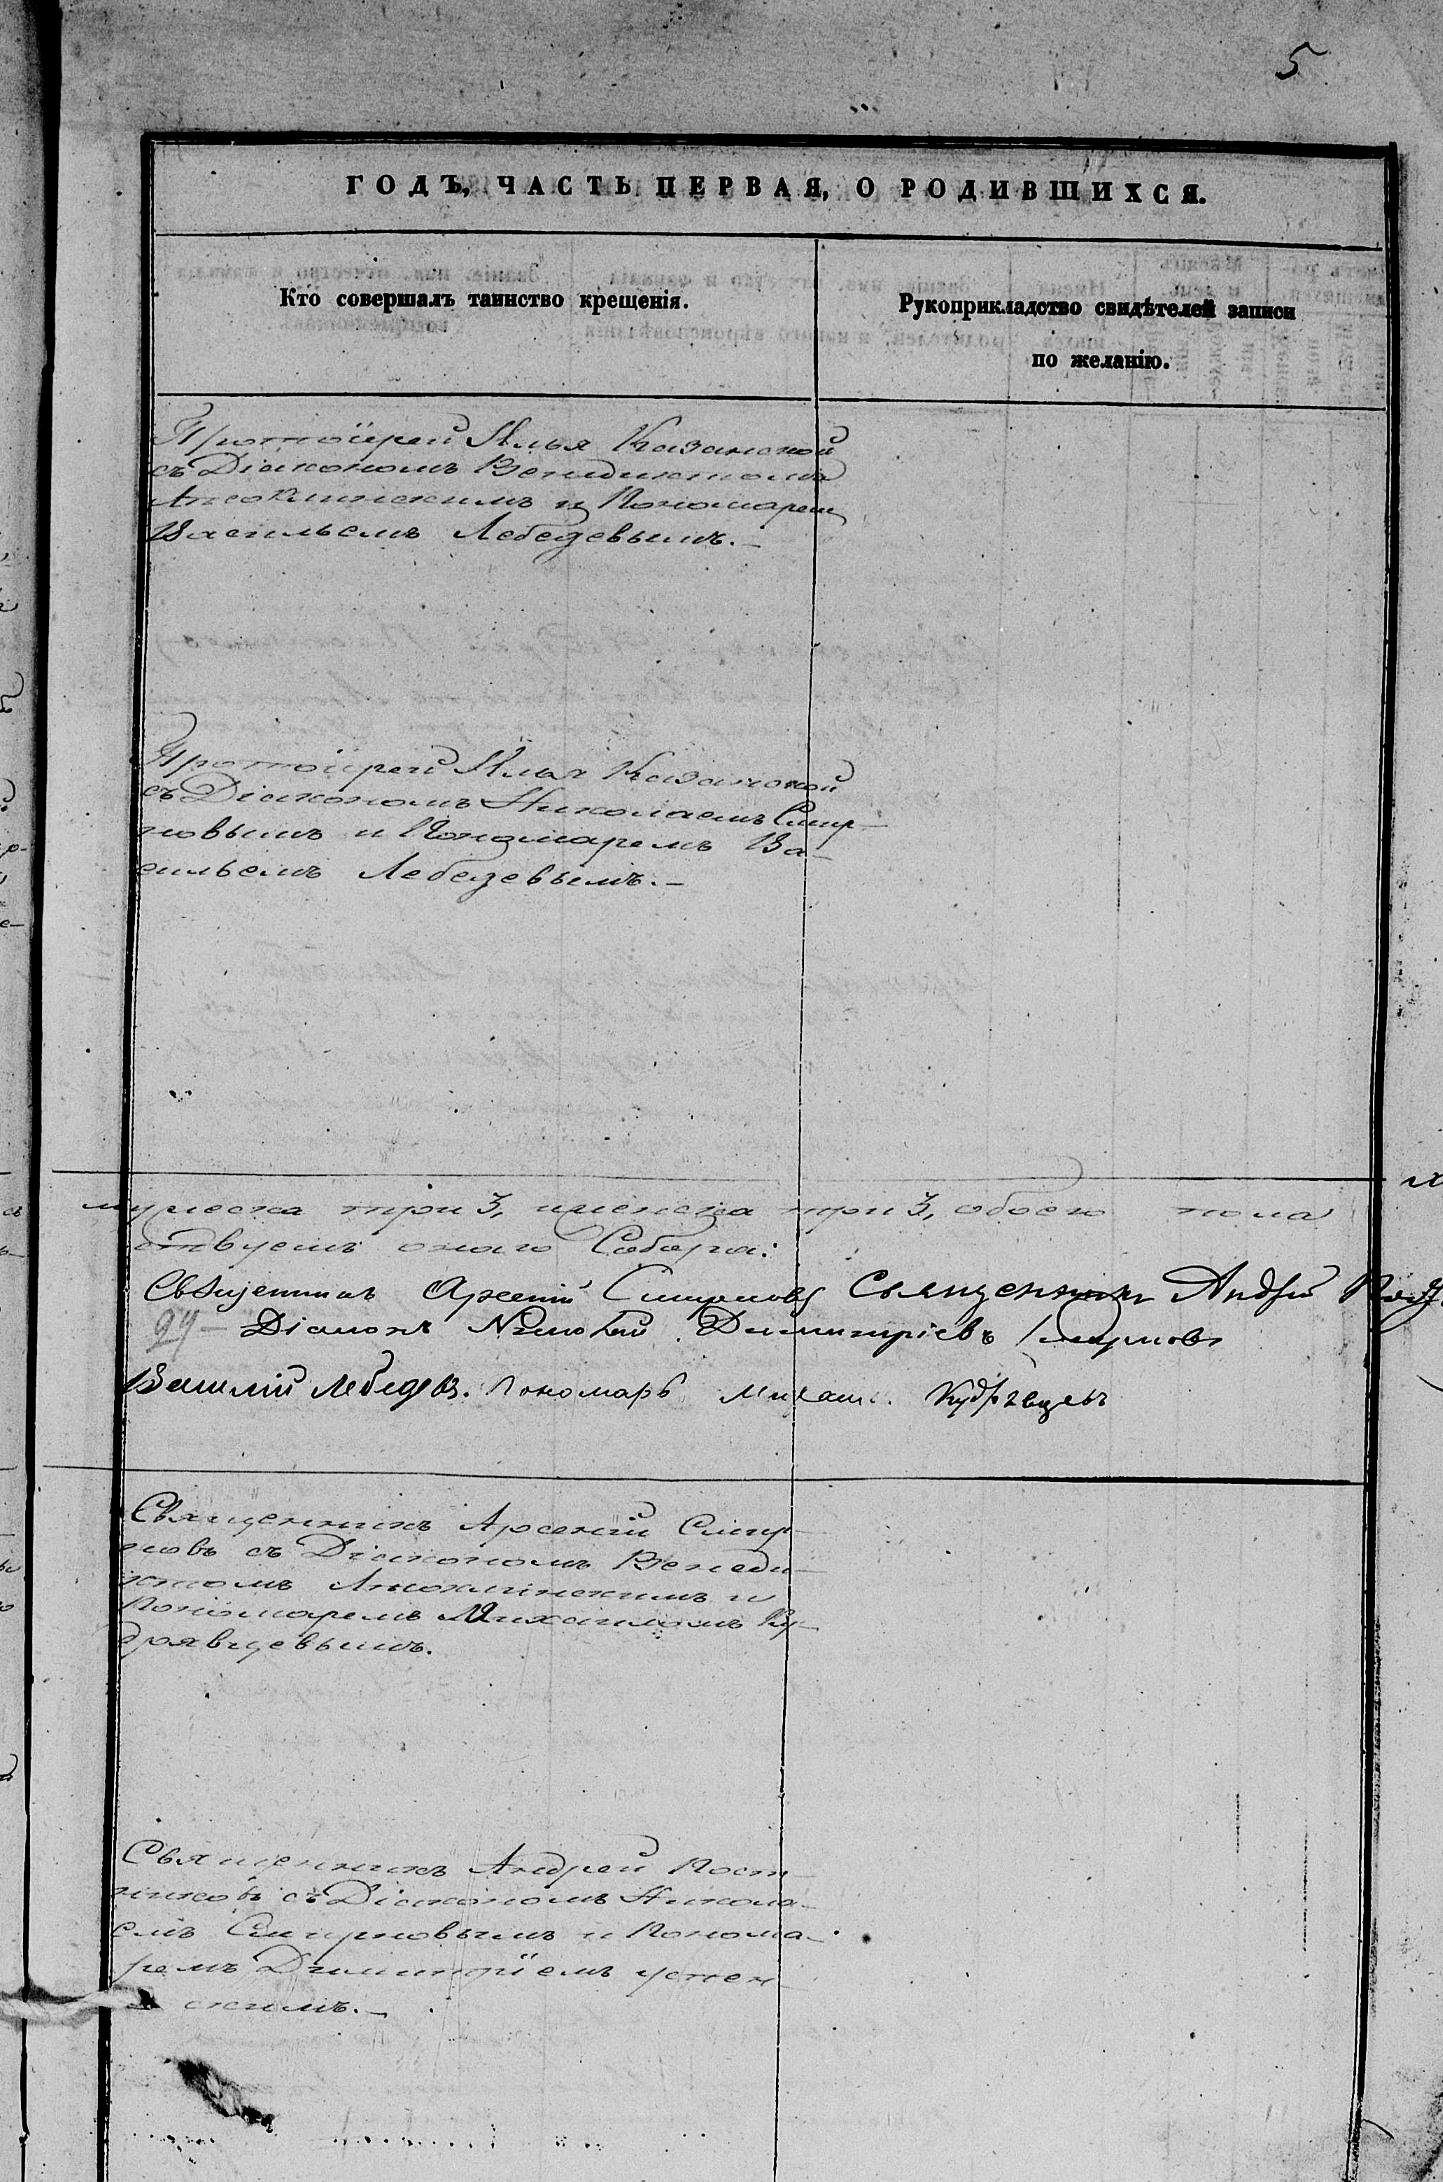 5
ГОДЪ, ЧАСТЬ ПЕРВАЯ, О РОДИВШИХСЯ.
Кто совершалъ таинство крещенія.
Рукоприкладство свидѣтелей записи
по желанію.
Протоіерей Илья Казанской
съ Діакономъ Венидиктомъ
и Пономарем
Васильемъ Лебедевымъ.
Протоіерей Илья Казанской
съ Діакономъ Николаемъ Смир-
новымъ и Пономаремъ Ва-
сильемъ Лебедевымъ.
мужеска три 3, женска три 3, обоего пола
Собора:
Священникъ Арсеній Смирновъ Священникъ Андрей
Діаконъ Николай Димитріевъ Смирновъ
Василій Лебедев. Пономарь Михаил Кудрявцевъ
Священникъ Арсеній Смир-
новъ съ Діакономъ Венеди-
ктомъ и
Пономаремъ Михаиломъ Ку-
дрявцевымъ.
Священникъ Андрей Пост-
никовъ съ Діакономъ Никола-
емъ Смирновымъ и Понома-
ремъ Димитріемъ Успен-
скимъ.